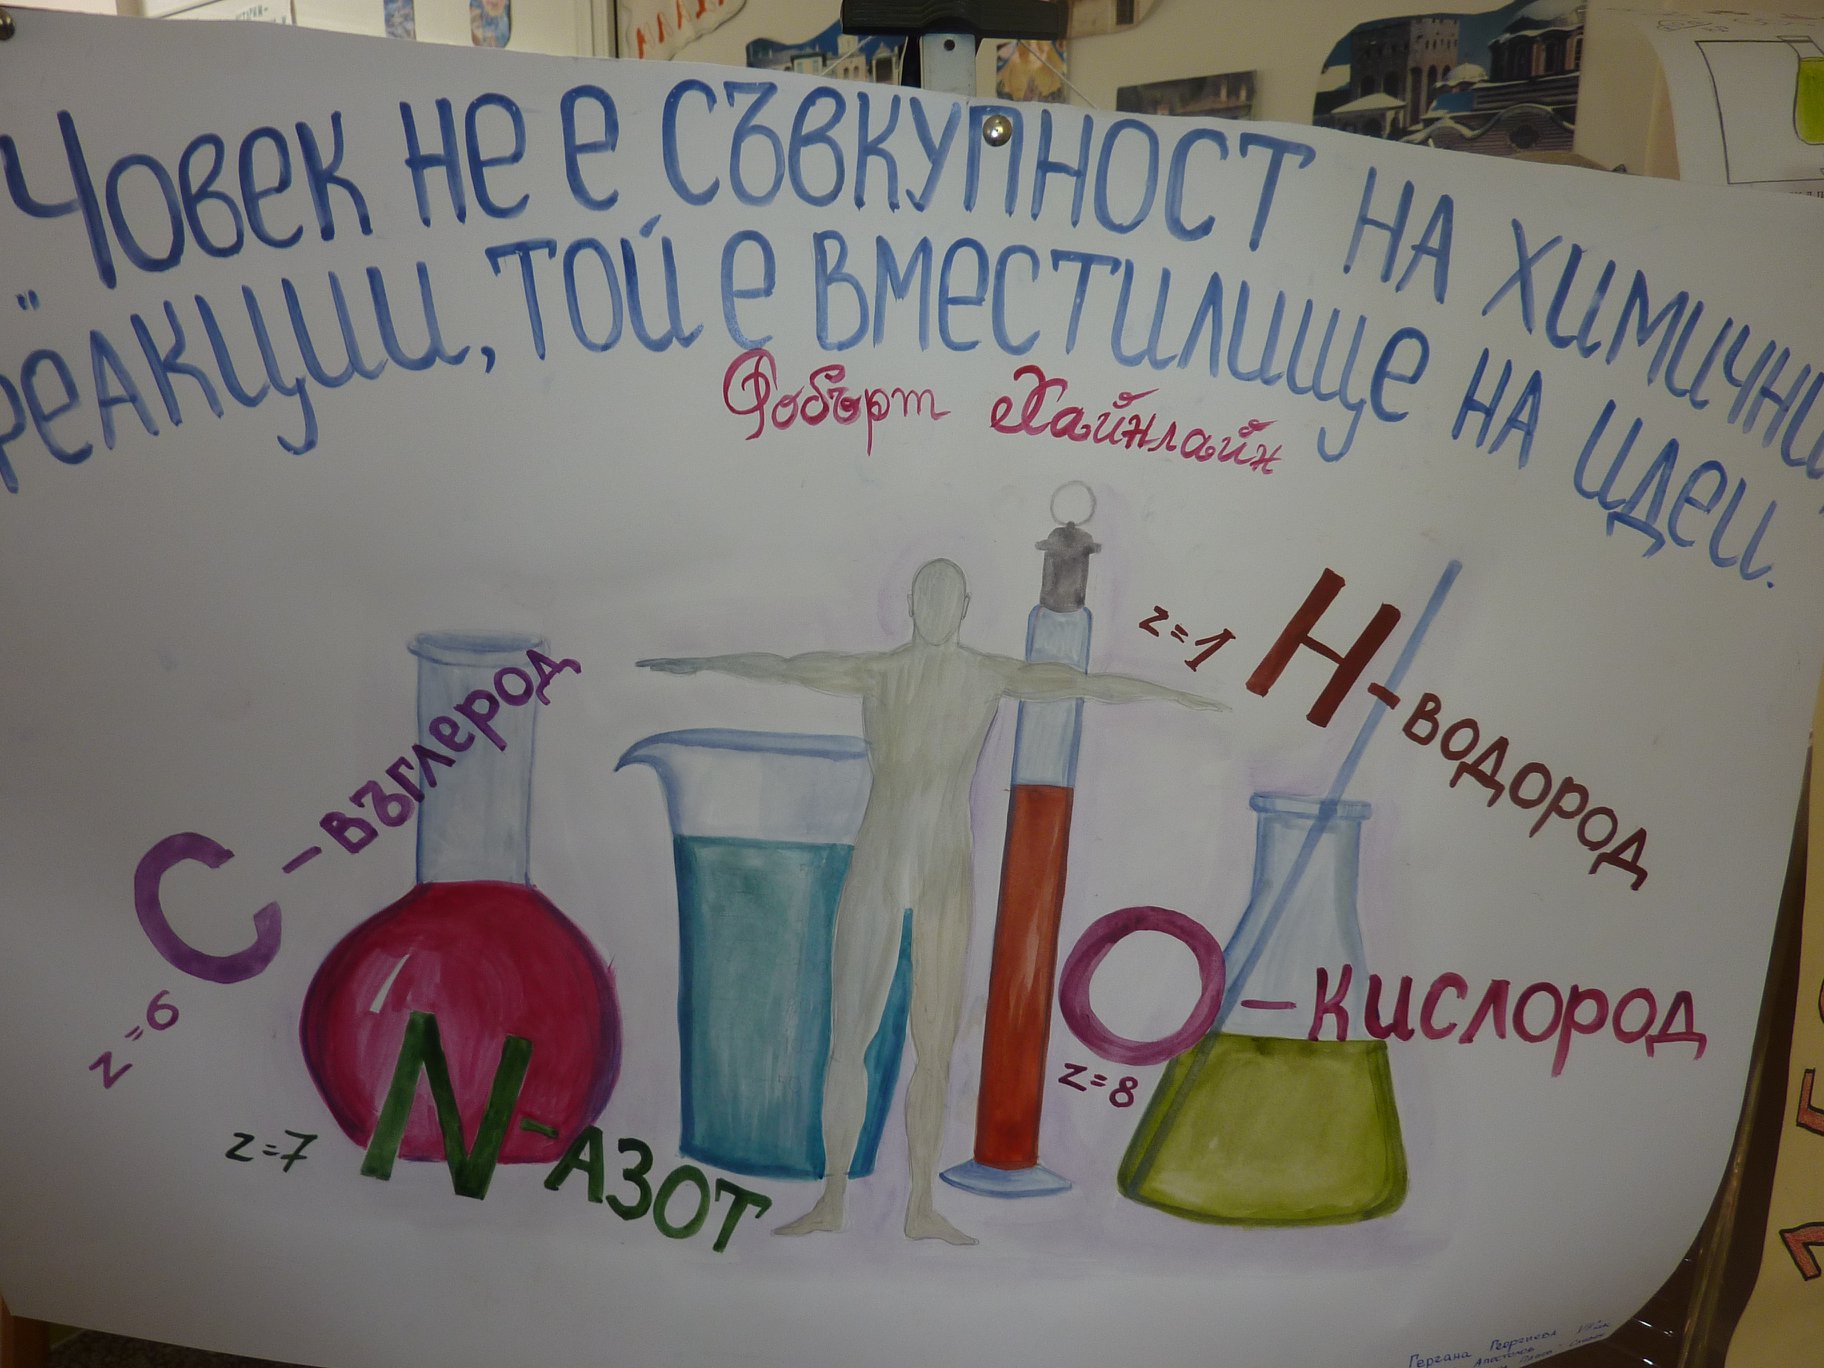 "Човек не е съвкупност на химични
реакции, той е вместилище на идеи.
Робърт Хайнлайн
z=1 H - водород
C - въглерод
z=6
O - кислород
z=8
z=7 N - азот
Гергана Георгиева
Апостолов